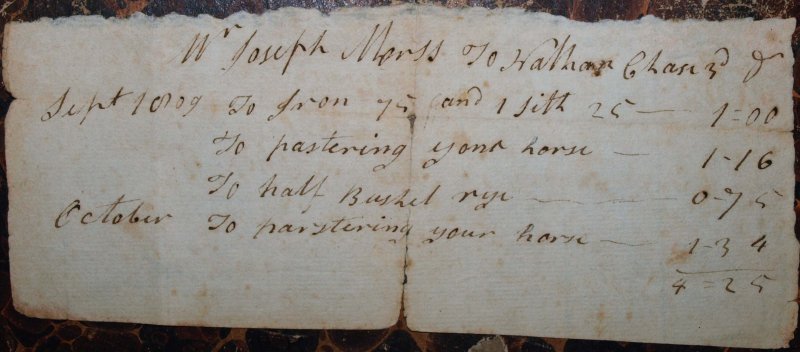 Mr Joseph Morss To Nathan Chase 3d Dr
Sept 1809 To Iron 75 and 1 sith 25 — 1=00
To pastering your horse — 1-16
To half Bushel rye — — — 0-75
October To parstering your horse — 1-34
4=25